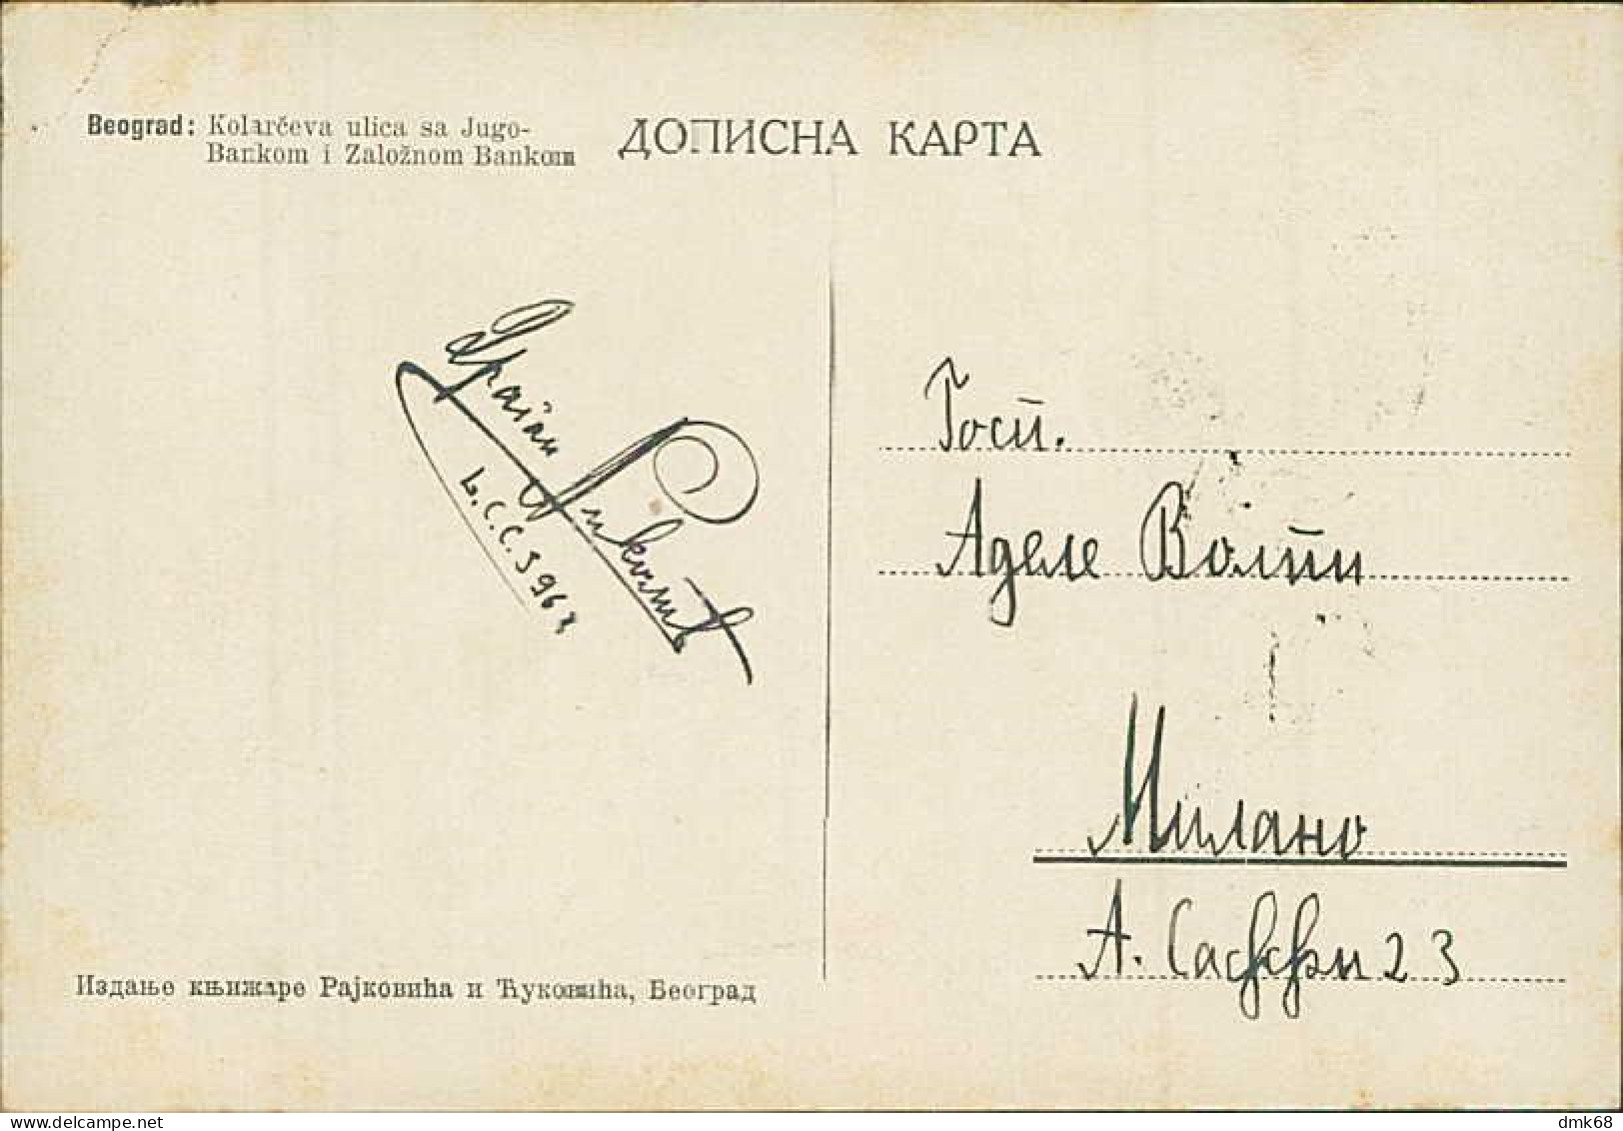 Beograd: Kolarčeva ulica sa Jugo-
Bankom i Založnom Bankom
ДОПИСНА КАРТА
L.C.C. 3963
Госп.
Аделе Волпи
Милано
А. Саффи 23
Издање књижаре Рајковића и Ћуковића, Београд
dmk68